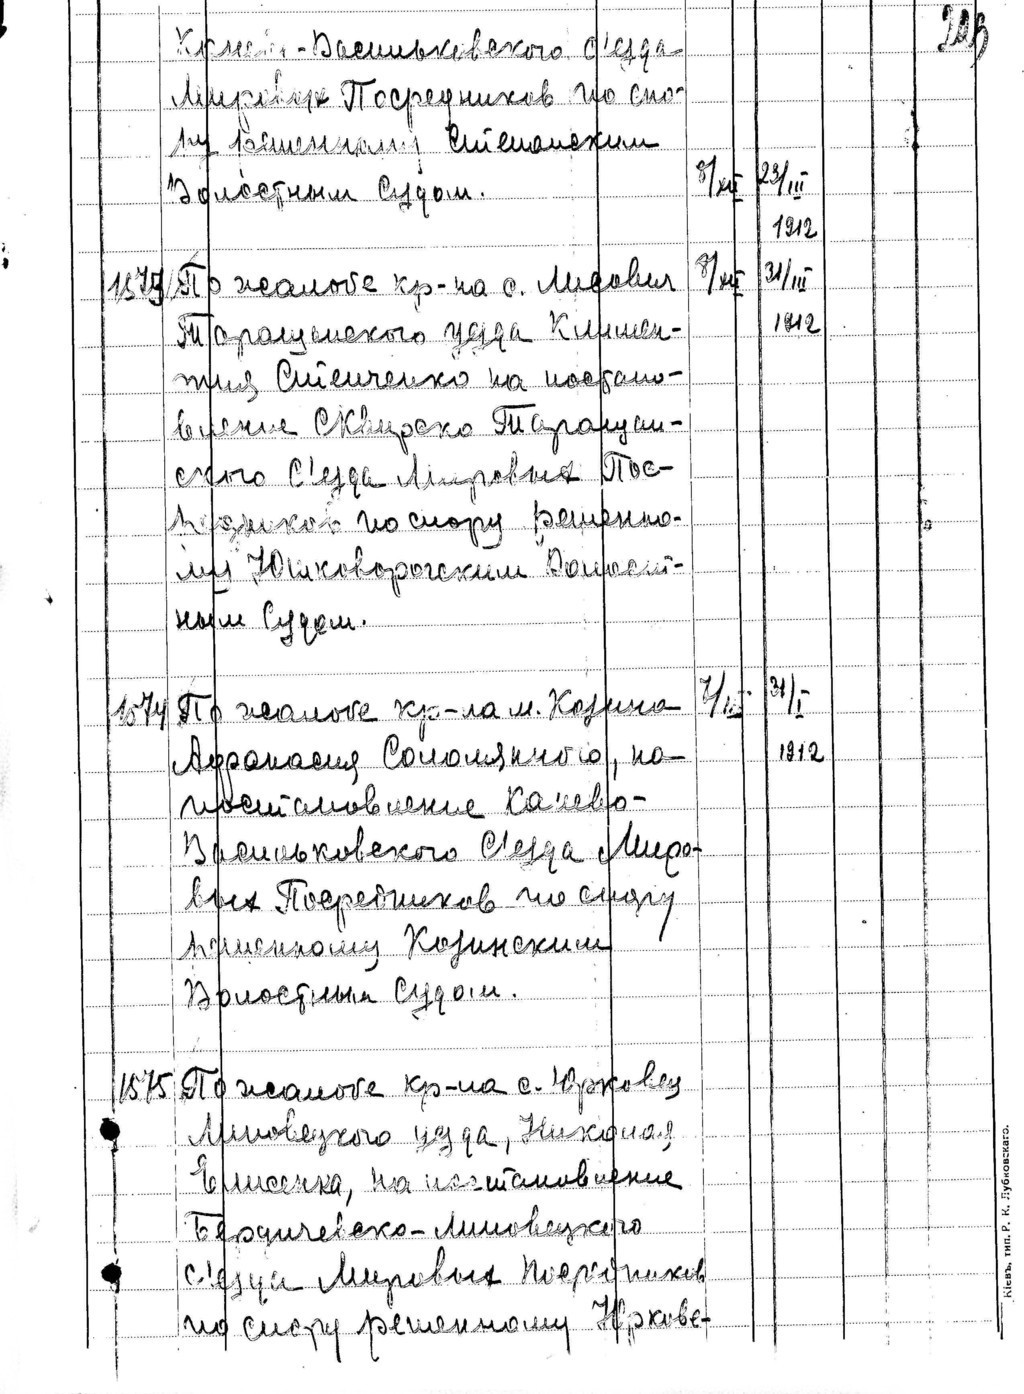 Васильковского С'езда
Мировых Посредников по спо-
ру решенному Степанским
Волостным Судом. 8/XII 23/III
1912
1573 По жалобе кр-на с. Лисович 8/XII 31/III
Таращанского уезда Климен- 1912
тия Стенченко на постано-
вление Сквирско Таращан-
ского С'езда Мировых Пос-
редников по спору решенно-
му Юшковорогским Волост-
ным Судом.
1574 По жалобе кр-на м. Козина 31/I
Афанасия Соломяного, на 1912
постановление Канево-
Васильковского С'езда Миро-
вых Посредников по спору
решенному Козинским
Волостным Судом.
1575 По жалобе кр-на с. Юрковец
Липовецкого уезда, Николая
Елисенка, на постановление
Бердичевско-Липовецкого
С'езда Мировых Посредников
по спору решенному Юркове-
Кіевъ, тип. Р. К. Лубковскаго.